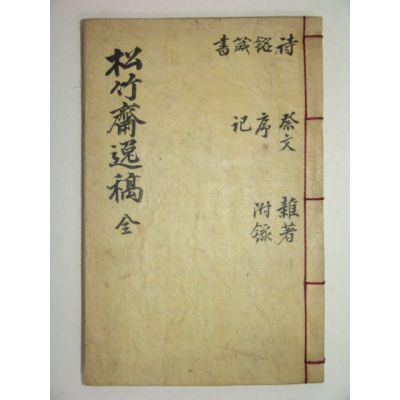 詩 祭文 雜著
銘 序 附錄
箴 記
書
松竹齋逸稿 全